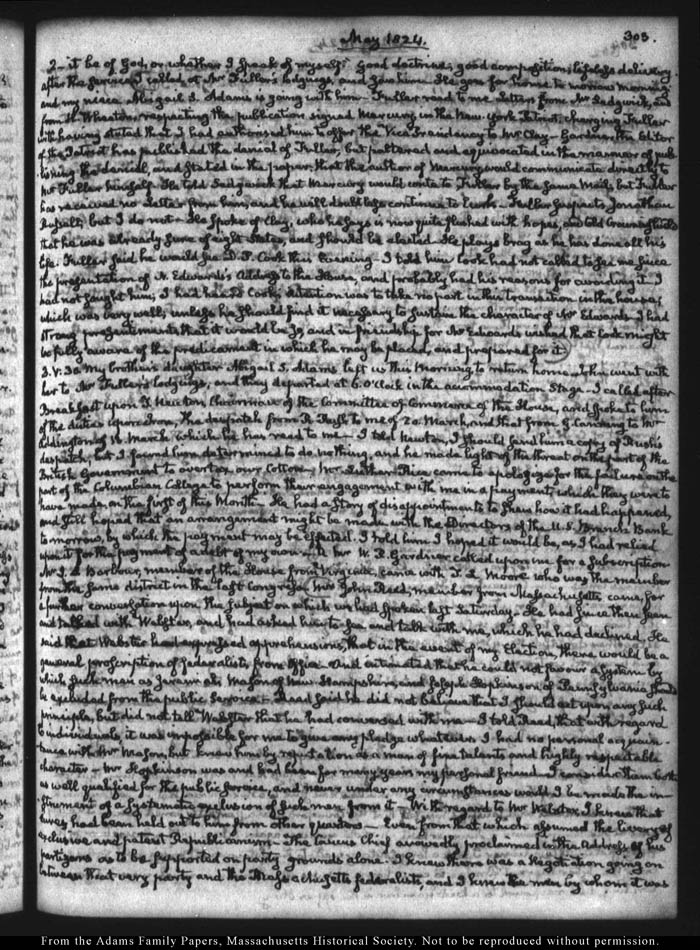 May 1824.
303.
2 - it be of God, or whether I speak of myself." Good doctrine; good composition; lifeless delivery.
After the service I called at Mr Fuller's lodgings, and saw him. He goes for home to-morrow morning
and my niece Abigail S. Adams is going with him - Fuller read to me Letters from Mr Sedgwick, and
from H. Wheaton, respecting the publication signed Mercury, in the New-York Patriot, charging Fuller
with having stated that I had authorised him to offer the Vice Presidency to Mr Clay - Gardner the Editor
of the Patriot has published the denial of Fuller, but paltered and equivocated in the manner of pub-
lishing the denial, and stated in the paper, that the author of Mercury would communicate directly to
Mr Fuller himself. He told Sedgwick that Mercury would write to Fuller by the same Mail; but Fuller
has received no Letter from him, and he will doubtless continue to lurk - Fuller suspects Jonathan
Russell; but I do not - He spoke of Clay, who he says is now quite flushed with hopes, and told Crowninshield
that he was already sure of eight States, and should be elected. He plays brag as he has done all his
life. Fuller said he would see D. P. Cook this Evening - I told him Cook had not called to see me since
the presentation of N. Edwards's Address to the House, and probably had his reasons for avoiding it. I
had not sought him; I had heard Cook's intention was to take no part in this transaction in the house;
which was very well; unless he should find it necessary to sustain the character of Mr Edwards. I had
strong presentiments that it would be so, and in friendship for Mr Edwards wished that Cook might
be fully aware of the predicament in which he may be placed, and prepared for it.
3. V: 30. My brother's daughter Abigail S. Adams left us this Morning, to return home. John went with
her to Mr Fuller's lodgings, and they departed at 6. O'Clock in the accommodation Stage - I called after
Breakfast upon T. Newton, Chairman of the Committee of Commerce of the House, and spoke to him
of the duties upon Iron, the despatch from R. Rush to me of 20. March, and that from G. Canning to Mr
Addington of 16. March which he has read to me - I told Newton, I should send him a copy of Rush's
despatch, but I found him determined to do nothing, and he made light of the threat on the part of the
British Government to overtax our Cotton - Mr Luther Rice came to apologize for the failure on the
part of the Columbian College to perform their engagement with me in a payment, which they were to
have made, on the first of this Month - He had a story of disappointments to show how it had happened,
and still hoped that an arrangement might be made with the Directors of the U.S. Branch Bank
to morrow, by which the payment may be effected. I told him I hoped it would be, as I had relied
upon it for the payment of a debt of my own - A Mr W. B. Gardiner called upon me for a Subscription.
Mr J. S. Barbour, member of the House from Virginia, came with T. L. Moore who was the member
from the same district in the last Congress. Mr John Reed, member from Massachusetts came, for
a further conversation upon the subject on which we had spoken last Saturday. He had since then seen
and talked with Webster, and had asked him to see and talk with me, which he had declined. He
said that Webster had expressed apprehensions, that in the event of my Election, there would be a
general proscription of federalists from Office. And intimated that he could not favour a system by
which such men as Jeremiah Mason of New-Hampshire, and Joseph Hopkinson of Pennsylvania should
be excluded from the public service - Reed said he did not believe that I should act upon any such
principle, but did not tell Webster that he had conversed with me - I told Reed, that with regard
to individuals, it was impossible for me to give any pledge whatever. I had no personal acquain-
tance with Mr Mason, but knew him by reputation as a man of fine talents and highly respectable
character - Mr Hopkinson was and had been for many years my personal friend - I consider them both
as well qualified for the public service, and never under any circumstances would I be made the in-
strument of a systematic exclusion of such men from it - With regard to Mr Webster, I knew that
lures had been held out to him from other quarters - Even from that which assumed the livery of
exclusive and patent Republicanism - The Caucus Chief avowedly proclaimed in the Address of his
partizans as to be supported on party grounds alone. I knew there was a Negotiation going on
between that very party and the Massachusetts federalists, and I knew the men by whom it was
From the Adams Family Papers, Massachusetts Historical Society. Not to be reproduced without permission.